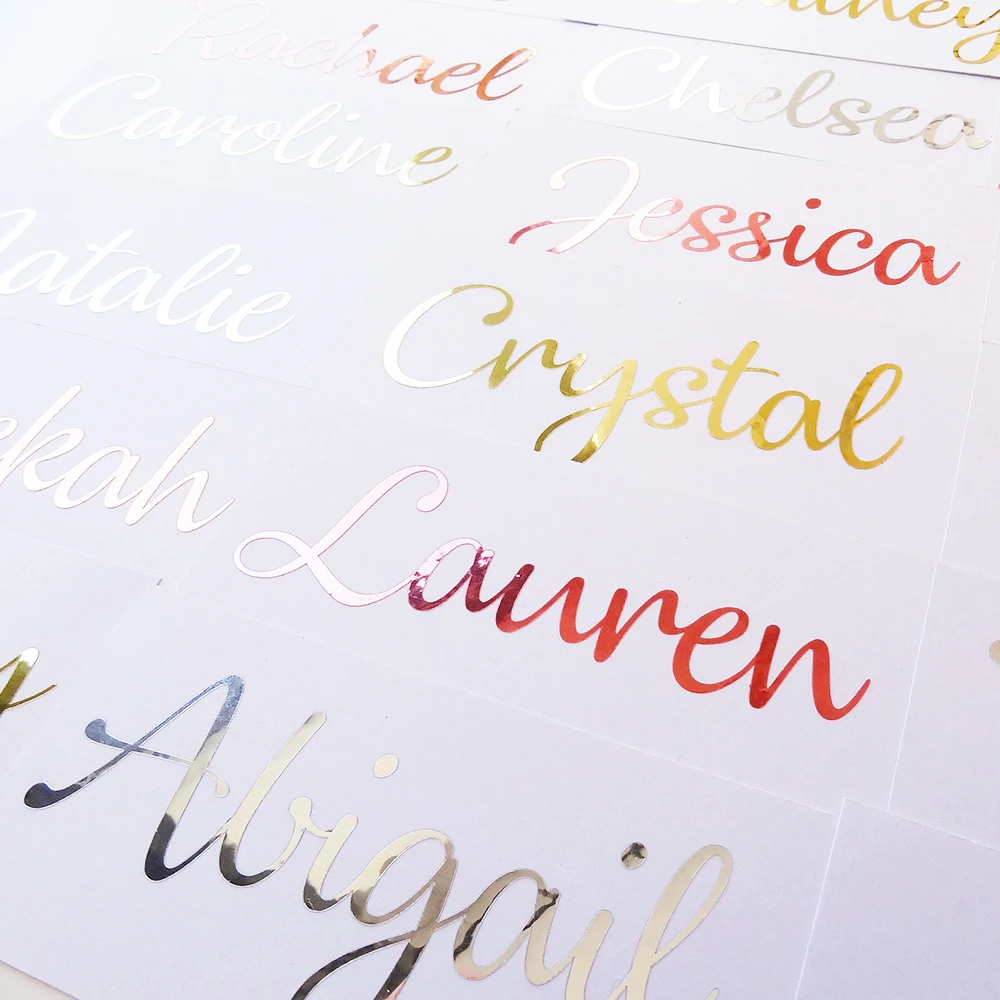 Rachael
Chelsea
Caroline
Jessica
Natalie
Crystal
ekah
Lauren
Abigail